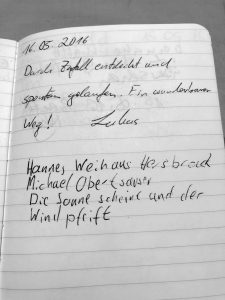 16.05.2016
Durch Zufall entdeckt und
spontan gelaufen. Ein wunderbarer
Weg! Lukas
Hannes Weih aus Hersbruck
Michael
Die Sonne scheint und der
Wind pfift